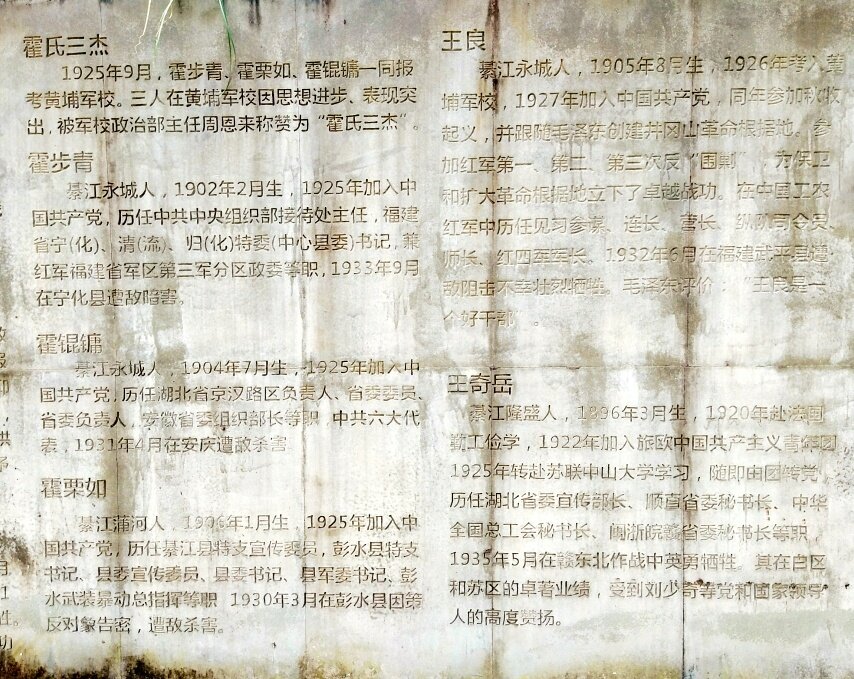 霍氏三杰
1925年9月，霍步青、霍栗如、霍锟镛一同报
考黄埔军校。三人在黄埔军校因思想进步、表现突
出，被军校政治部主任周恩来称赞为“霍氏三杰”。
霍步青
綦江永城人，1902年2月生，1925年加入中
国共产党，历任中共中央组织部接待处主任，福建
省宁(化)、清(流)、归(化)特委(中心县委)书记，兼
红军福建省军区第三军分区政委等职，1933年9月
在宁化县遭敌暗害。
霍锟镛
綦江永城人，1904年7月生，1925年加入中
国共产党，历任湖北省京汉路区负责人、省委委员、
省委负责人，安徽省委组织部长等职，中共六大代
表，1931年4月在安庆遭敌杀害
霍栗如
綦江蒲河人，1906年1月生，1925年加入中
国共产党，历任綦江县特支宣传委员，彭水县特支
书记、县委宣传委员、县委书记、县军委书记、彭
水武装暴动总指挥等职 1930年3月在彭水县因策
反对象告密，遭敌杀害。
王良
綦江永城人，1905年8月生，1926年考入黄
埔军校，1927年加入中国共产党，同年参加秋收
起义，并跟随毛泽东创建井冈山革命根据地。参
加红军第一、第二、第三次反“围剿”，为保卫
和扩大革命根据地立下了卓越战功。在中国工农
红军中历任见习参谋、连长、营长、纵队司令员、
师长、红四军军长。1932年6月在福建武平县遭
敌阻击不幸壮烈牺牲。毛泽东评价：“王良是一
个好干部”。
王奇岳
綦江隆盛人，1896年3月生，1920年赴法国
勤工俭学，1922年加入旅欧中国共产主义青年团
1925年转赴苏联中山大学学习，随即由团转党，
历任湖北省委宣传部长、顺直省委秘书长、中华
全国总工会秘书长、闽浙皖赣省委秘书长等职，
1935年5月在赣东北作战中英勇牺牲。其在白区
和苏区的卓著业绩，受到刘少奇等党和国家领导
人的高度赞扬。